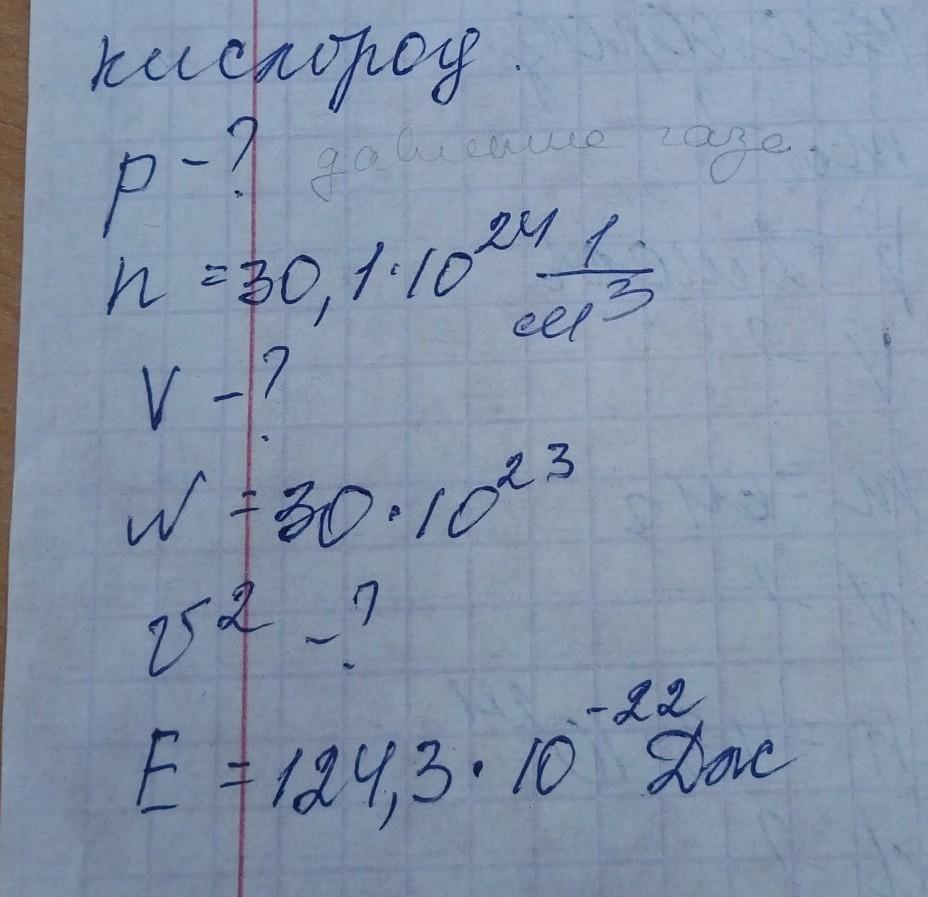 кислород.
p - ? давление газа.
n = 30,1·10²⁴ 1/см³
V - ?
N = 30·10²³
v² - ?
E = 124,3·10⁻²² Дж